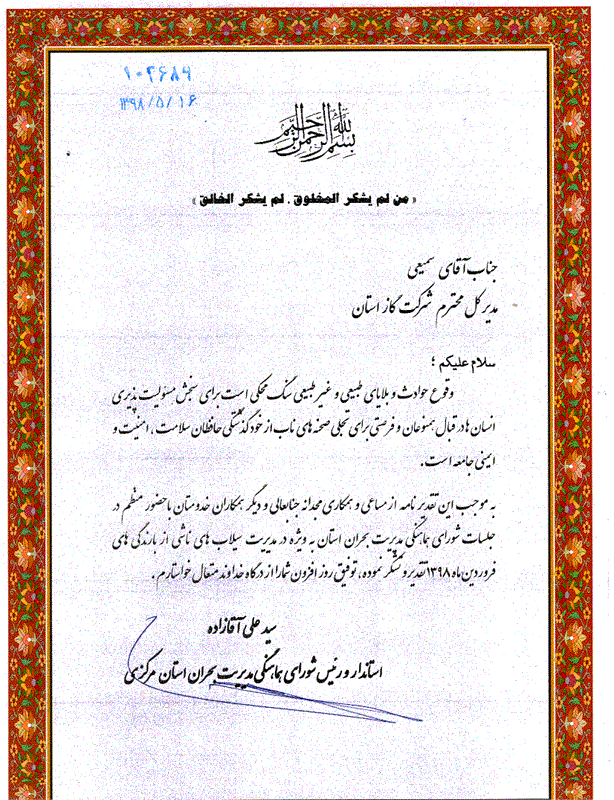 ۱۰۲۶۸۹
۱۳۹۸/۵/۱۶
بسم الله الرحمن الرحیم
« من لم یشکر المخلوق ، لم یشکر الخالق »
جناب آقای سمیعی
مدیر کل محترم شرکت گاز استان
سلام علیکم ؛
وقوع حوادث و بلایای طبیعی و غیر طبیعی سنگ محکی است برای سنجش مسئولیت پذیری
انسان ها در قبال همنوعان و فرصتی برای تجلی صحنه های ناب از خود گذشتگی حافظان سلامت ، امنیت و
ایمنی جامعه است .
به موجب این تقدیر نامه از مساعی و همکاری مجدانه جنابعالی و دیگر همکاران خدومتان با حضور منظم در
جلسات شورای هماهنگی مدیریت بحران استان به ویژه در مدیریت سیلاب های ناشی از بارندگی های
فروردین ماه ۱۳۹۸ تقدیر و تشکر نموده ، توفیق روز افزون شما را از درگاه خداوند متعال خواستارم .
سید علی آقازاده
استاندار و رئیس شورای هماهنگی مدیریت بحران استان مرکزی